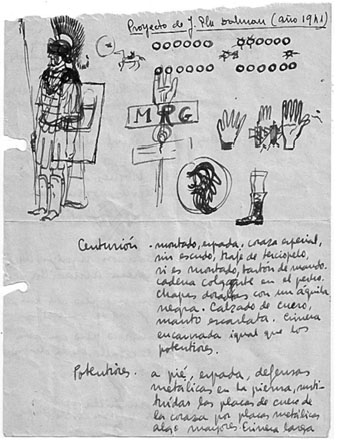 Proyecto de J. Pla Dalmau (año 1941)
MRG
Centurión. montado, espada. coraza especial,
sin escudo, traje de terciopelo,
si es montado, bastón de mando.
cadena colgante en el pecho.
chapas doradas con un águila
negra. Calzado de cuero,
manto escarlata. Cimera
encarnada igual que los
potentiores.
Potentiores. a pié, espada, defensas
metálicas en la pierna, susti-
tuidas las placas de cuero de
la coraza por placas metálicas
algo mayores. Cimera larga